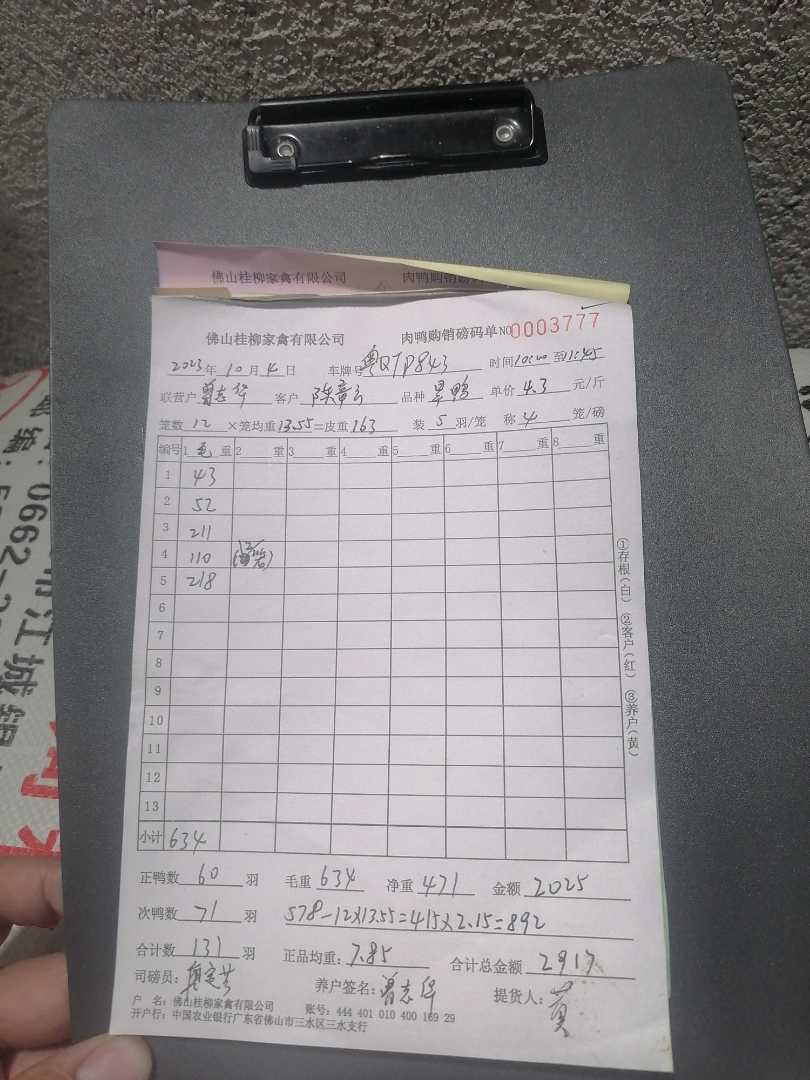 佛山桂柳家禽有限公司 肉鸭购销磅码单
佛山桂柳家禽有限公司 肉鸭购销磅码单 NO 0003777
2023年 10月 4日 车牌号 粤Q7P843 时间 10:40 至 11:45
联营户 曾志华 客户 品种 单价 4.3 元/斤
笼数 12 ×笼均重 13.55 =皮重 163 装 5 羽/笼 称 4 笼/磅
编号 1 毛 重 2 重 3 重 4 重 5 重 6 重 7 重 8 重
1 43
2 52
3 211
4 110
5 218
6
7
8
9
10
11
12
13
小计 634
①存根(白) ②客户(红) ③养户(黄)
正鸭数 60 羽 毛重 634 净重 471 金额 2025
次鸭数 71 羽 578-12×13.55=415×2.15=892
合计数 131 羽 正品均重: 7.85 合计总金额 2917
司磅员: 养户签名: 曾志华 提货人: 黄
户 名: 佛山桂柳家禽有限公司 账号: 444 401 010 400 169 29
开户行: 中国农业银行广东省佛山市三水区三水支行
编: 0662-
江城银